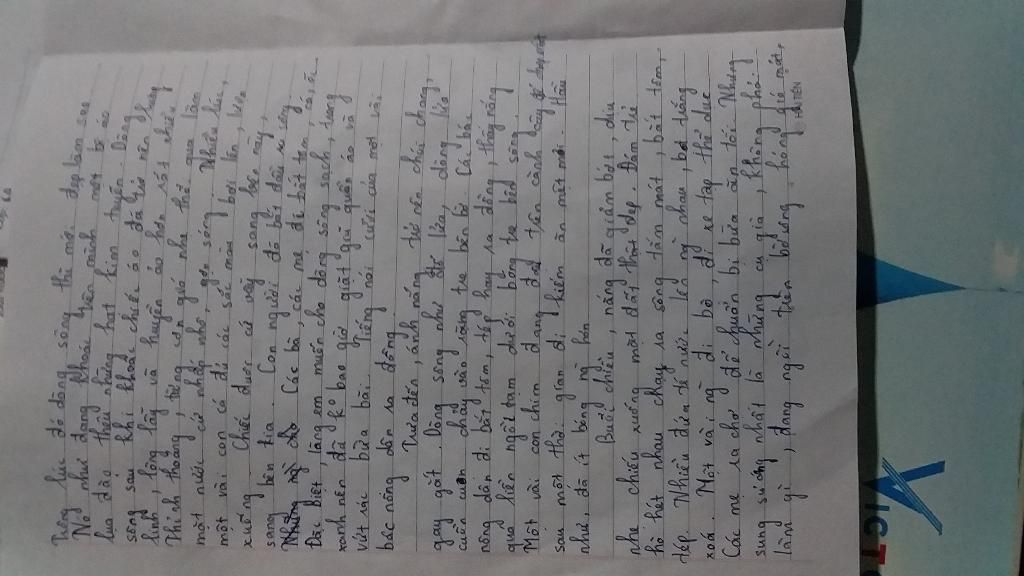 Trông lúc đó dòng sông thì mới đẹp làm sao
Nó như đang khoác trên mình một tà áo
lụa đào thêu hàng hạt kim tuyến. Dòng
sông sau khi khoác chiếc áo đã trở nên lung
linh, lộng lẫy và huyền ảo hơn rất nhiều.
Thỉnh thoảng, từng cơn gió nhẹ thổi qua làm
mặt nước cứ nhấp nhô, gợn sóng. Nhiều lúc,
một vài con cá đủ các sắc màu bơi lên, bơi
xuống. Chiếc đuôi cứ vẫy sang bên này,
sang bên kia. Con người đã bắt đầu ra sông
Đặc biệt, làng em muốn cho dòng sông sạch, trong
xanh nên đã ko bao giờ giặt giũ quần áo và
vứt rác bừa bãi. Tiếng nói cười của một vài
bác nông dân ra đồng.
Trưa đến, ánh nắng trở nên chói chang,
gay gắt. Dòng sông như đổ lửa, dòng lửa
cuồn cuộn chảy vào rặng tre bên bờ. Cái bác
nông dân đi bắt tôm, tép hay ra đồng, thấy nắng
quá liền ngồi tạm dưới bóng tre bờ sông.
Một vài con chim đang đậu trên cành cây để
sau một thời gian đi kiếm ăn mệt mỏi. Hầu
như, đã ít bóng ng hơn
Buổi chiều, nắng đã giảm bớt, dịu
nhẹ chiếu xuống mặt đất thật đẹp. Đám trẻ
hò hét nhau chạy ra sông tắm mát, bắt tôm,
tép. Nhiều đứa té nước lên ng nhau, bọt trắng
xoá. Một vài ng đi bộ, đi xe tập thể dục
Các mẹ ra chợ để chuẩn bị bữa ăn tối. Nhưng
sung sướng nhất là những cụ già, không phải
làm gì, đang ngồi trên bờ hóng gió mát,